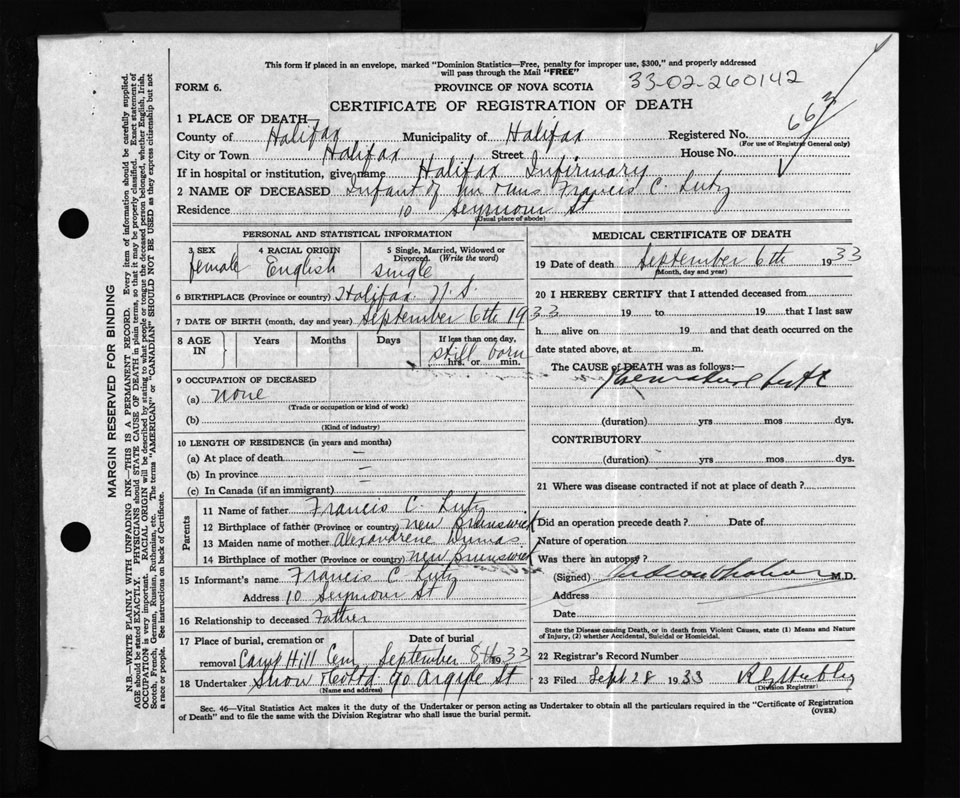 This form if placed in an envelope, marked "Dominion Statistics—Free, penalty for improper use, $300," and properly addressed
will pass through the Mail "FREE"
FORM 6. PROVINCE OF NOVA SCOTIA 33-02-260142
CERTIFICATE OF REGISTRATION OF DEATH
1 PLACE OF DEATH
County of Halifax Municipality of Halifax Registered No. 663
(For use of Registrar General only)
City or Town Halifax Street House No.
If in hospital or institution, give name Halifax Infirmary
2 NAME OF DECEASED Infant of Mr Mrs Francis C. Lutz
Residence 10 Seymour St
(Usual place of abode)
PERSONAL AND STATISTICAL INFORMATION
3 SEX 4 RACIAL ORIGIN 5 Single, Married, Widowed or
Divorced (Write the word)
female English single
6 BIRTHPLACE (Province or country) Halifax. N.S.
7 DATE OF BIRTH (month, day and year) September 6th 1933
8 AGE IN Years Months Days If less than one day,
still born
hrs. or min.
9 OCCUPATION OF DECEASED
(a) none
(Trade or occupation or kind of work)
(b)
(Kind of industry)
10 LENGTH OF RESIDENCE (in years and months)
(a) At place of death —
(b) In province —
(c) In Canada (if an immigrant)
Parents
11 Name of father Francis C. Lutz
12 Birthplace of father (Province or country) New Brunswick
13 Maiden name of mother Alexandrene Dumas
14 Birthplace of mother (Province or country) New Brunswick
15 Informant's name Francis C Lutz
Address 10 Seymour St
16 Relationship to deceased Father
17 Place of burial, cremation or Date of burial
removal Camp Hill Cem September 8th 1933
18 Undertaker Snow & Co Ltd 90 Argyle St
(Name and address)
MEDICAL CERTIFICATE OF DEATH
19 Date of death September 6th 1933
(Month, day and year)
20 I HEREBY CERTIFY that I attended deceased from
19 to 19 that I last saw
h alive on 19 and that death occurred on
date stated above, at m.
The CAUSE of DEATH was as follows:—
Premature birth
(duration) yrs mos dys.
CONTRIBUTORY
(duration) yrs mos dys.
21 Where was disease contracted if not at place of death?
Did an operation precede death? Date of
Nature of operation
Was there an autopsy?
(Signed) M.D.
Address
Date
State the Disease causing Death, or in death from Violent Causes, state (1) Means and Nature
of Injury, (2) whether Accidental, Suicidal or Homicidal.
22 Registrar's Record Number
23 Filed Sept 28 1933
(Division Registrar)
Sec. 46—Vital Statistics Act makes it the duty of the Undertaker or person acting as Undertaker to obtain all the particulars required in the "Certificate of Registration
of Death" and to file the same with the Division Registrar who shall issue the burial permit. (OVER)
MARGIN RESERVED FOR BINDING
N.B.—WRITE PLAINLY WITH UNFADING INK—THIS IS A PERMANENT RECORD. Every item of information should be carefully supplied.
AGE should be stated EXACTLY. PHYSICIANS should STATE CAUSE OF DEATH in plain terms, so that it may be properly classified. Exact statement of
OCCUPATION is very important. RACIAL ORIGIN will be described by stating to what people or tongue the deceased person belonged, whether English, Irish,
Scotch, French, German, Russian, Ruthenian, etc. The terms "AMERICAN" or "CANADIAN" SHOULD NOT BE USED as they express citizenship but not
a race or people. See instructions on back of Certificate.